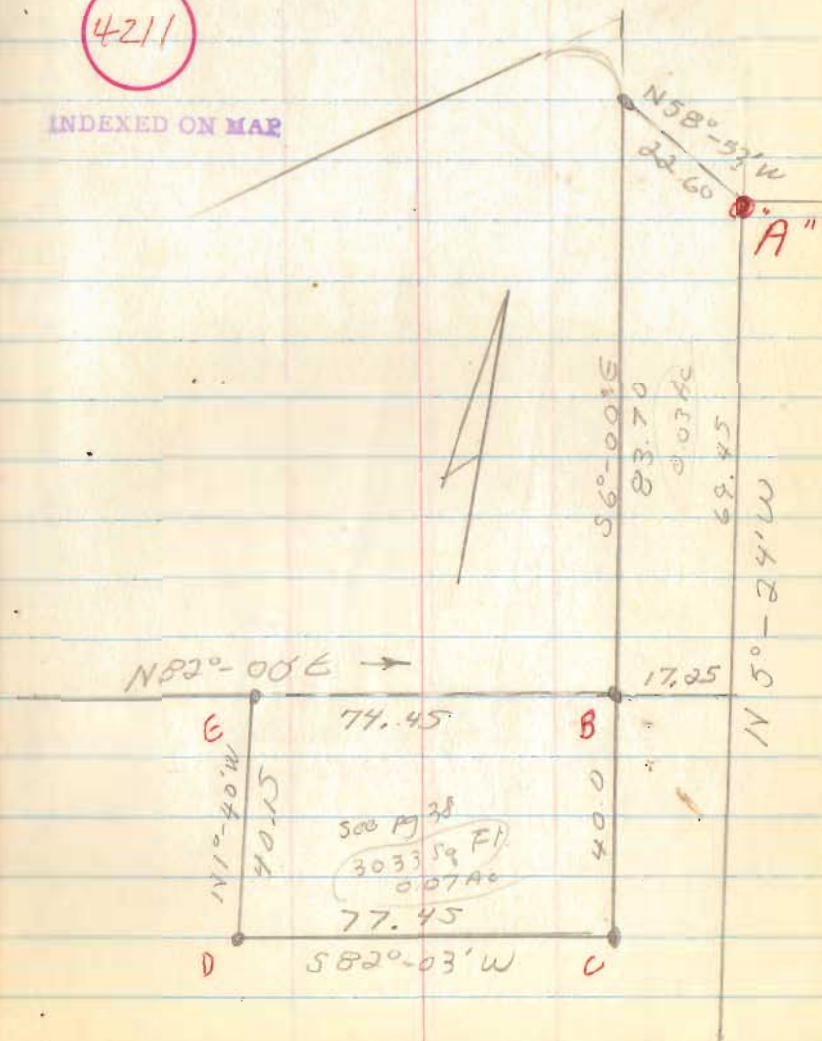 4211
INDEXED ON MAP
N58°-53'W
22.60
"A"
S6°-00'E
83.70
0.03 Ac
69.45
N 5°-24'W
N82°-00'E →
17.25
E
74.45
B
N1°-40'W
40.15
40.0
See Pg 38
3033 Sq Ft
0.07 Ac
77.45
D
S82°-03'W
C